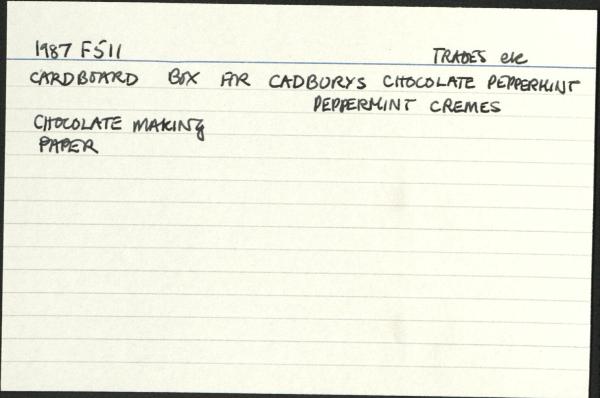 1987 F511 TRADES etc
CARDBOARD BOX FOR CADBURYS CHOCOLATE PEPPERMINT
PEPPERMINT CREMES
CHOCOLATE MAKING
PAPER